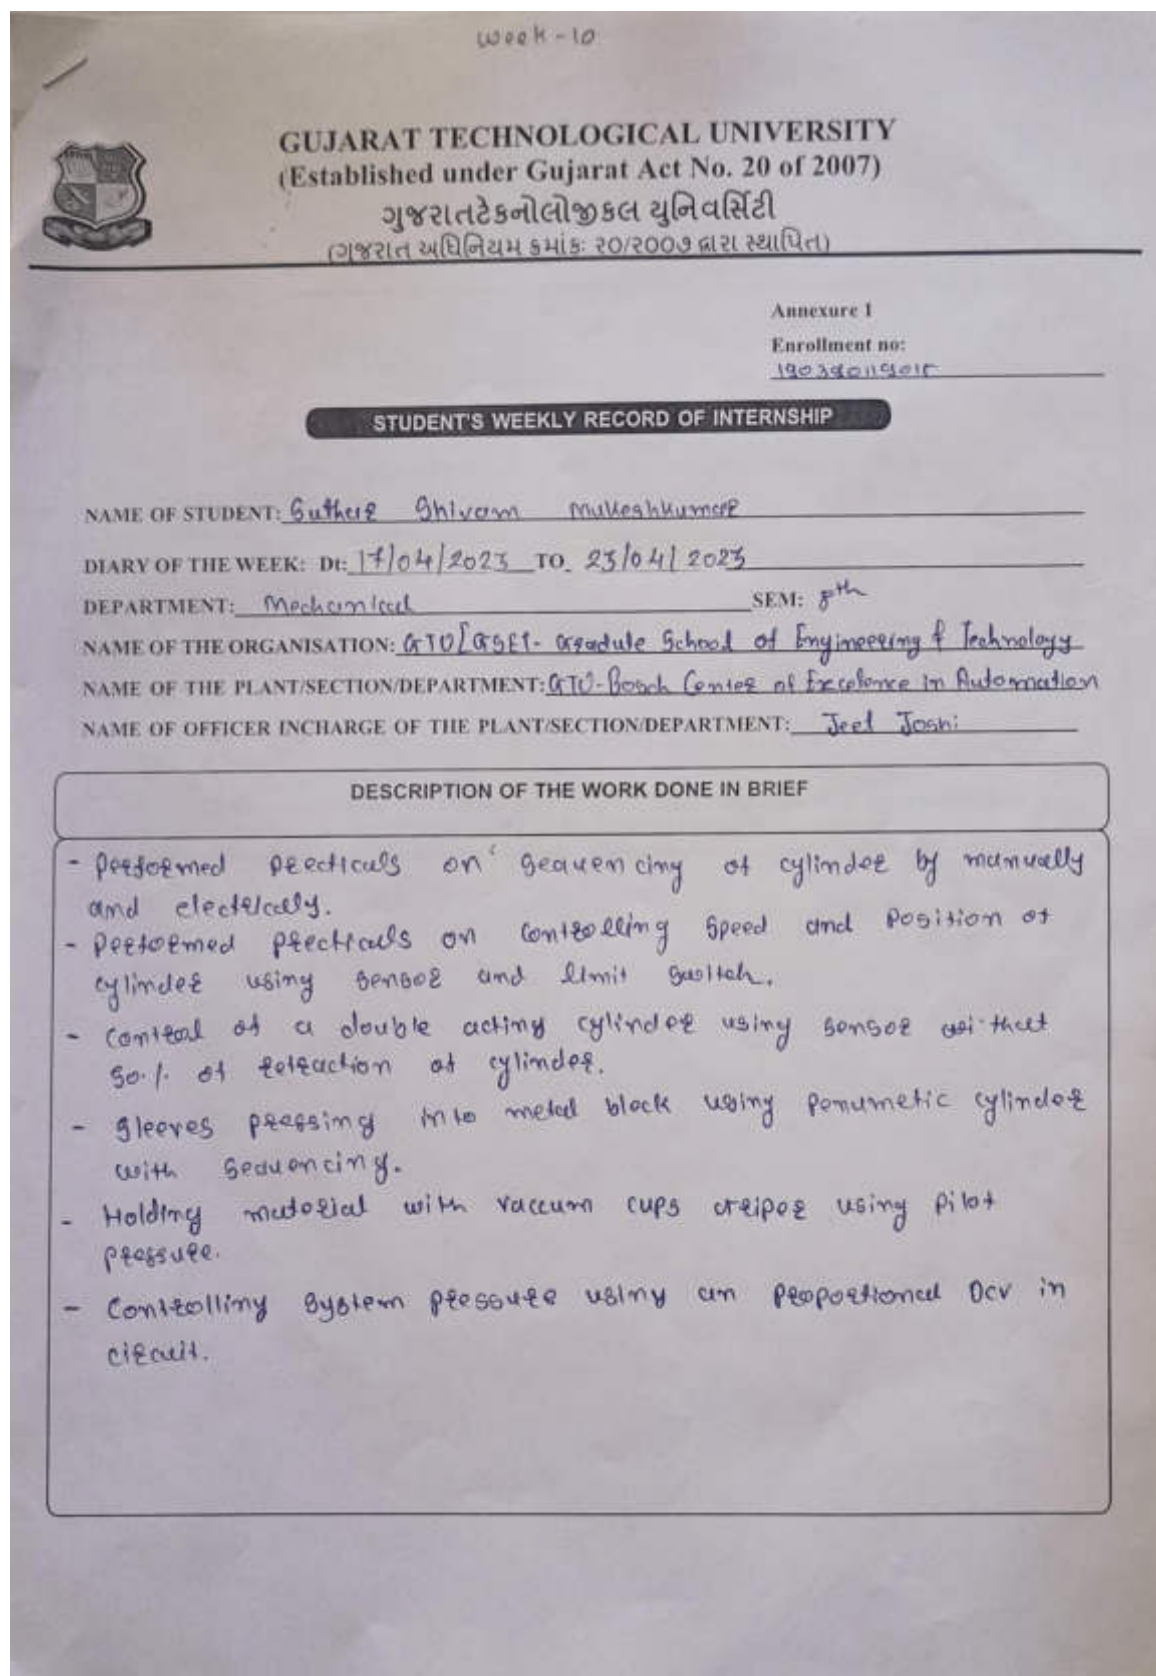 Week-10
GUJARAT TECHNOLOGICAL UNIVERSITY
(Established under Gujarat Act No. 20 of 2007)
ગુજરાતટેકનોલોજીકલ યુનિવર્સિટી
(ગુજરાત અધિનિયમ ક્રમાંકઃ ૨૦/૨૦૦૭ દ્વારા સ્થાપિત)
Annexure 1
Enrollment no:
STUDENT'S WEEKLY RECORD OF INTERNSHIP
NAME OF STUDENT: Suthar Shivam Mukeshkumar
DIARY OF THE WEEK: Dt: 17/04/2023 TO 23/04/2023
DEPARTMENT: Mechanical SEM: 8th
NAME OF THE ORGANISATION: GTU[GSET- Gradute School of Engineering & Technology
NAME OF THE PLANT/SECTION/DEPARTMENT: GTU-Bosch Center of Excelence in Automation
NAME OF OFFICER INCHARGE OF THE PLANT/SECTION/DEPARTMENT: Jeet Joshi
DESCRIPTION OF THE WORK DONE IN BRIEF
- Performed precticals on sequencing of cylinder by manually
and electrically.
- Performed precticals on controlling speed and position of
cylinder using sensor and limit switch.
- Control of a double acting cylinder using sensor that
50% of retraction of cylinder.
- Sleeves pressing into metal block using penumetic cylinder
with sequencing.
- Holding material with vaccum cups griper using pilot
pressure.
- Controlling system pressure using an proportional DCV in
circuit.